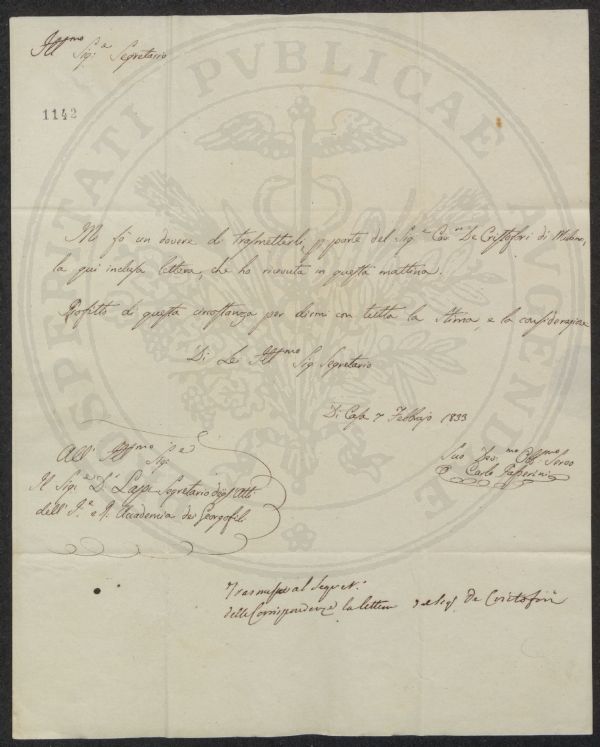 Ill.mo Sig.e Segretario
1142
PROSPERITATI PVBLICAE AVGENDAE
Mi fò un dovere di trasmetterle, p parte del Sig.e Cav.re De Cristofori di Milano,
la qui inclusa lettera, che ho ricevuta in questa mattina.
Profitto di questa circostanza per dirmi con tutta la stima, e la considerazione
Di Lei Ill.mo Sig. Segretario
Di Casa 7 Febbrajo 1833
All' Ill.mo Sig.e
Il Sig.e D.r Lapi Segretario degli Atti
dell' I. e R. Accademia dei Georgofili
Suo Dev.mo Obb.mo Servo
Carlo Passerini
Trasmessa al Segret.
delle Corrispondenze la lettera del Sig. De Cristofori